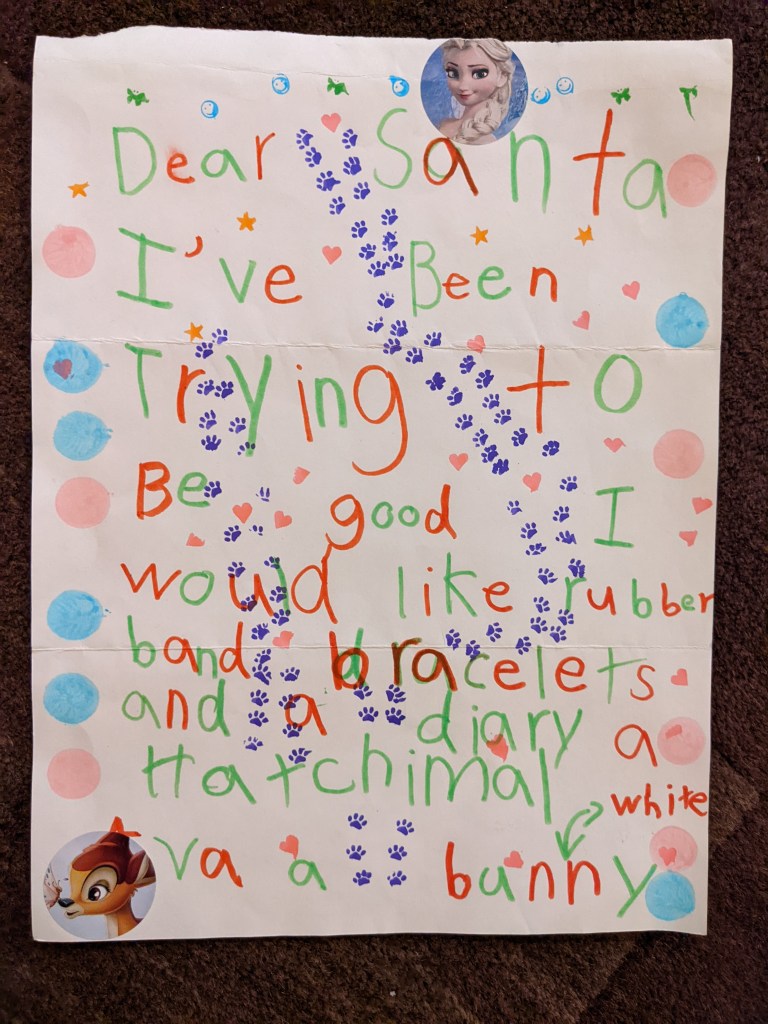 Dear Santa
I've Been
Trying to
Be good I
would like rubber
band bracelets
and a diary a
Hatchimal
white
Ava a bunny